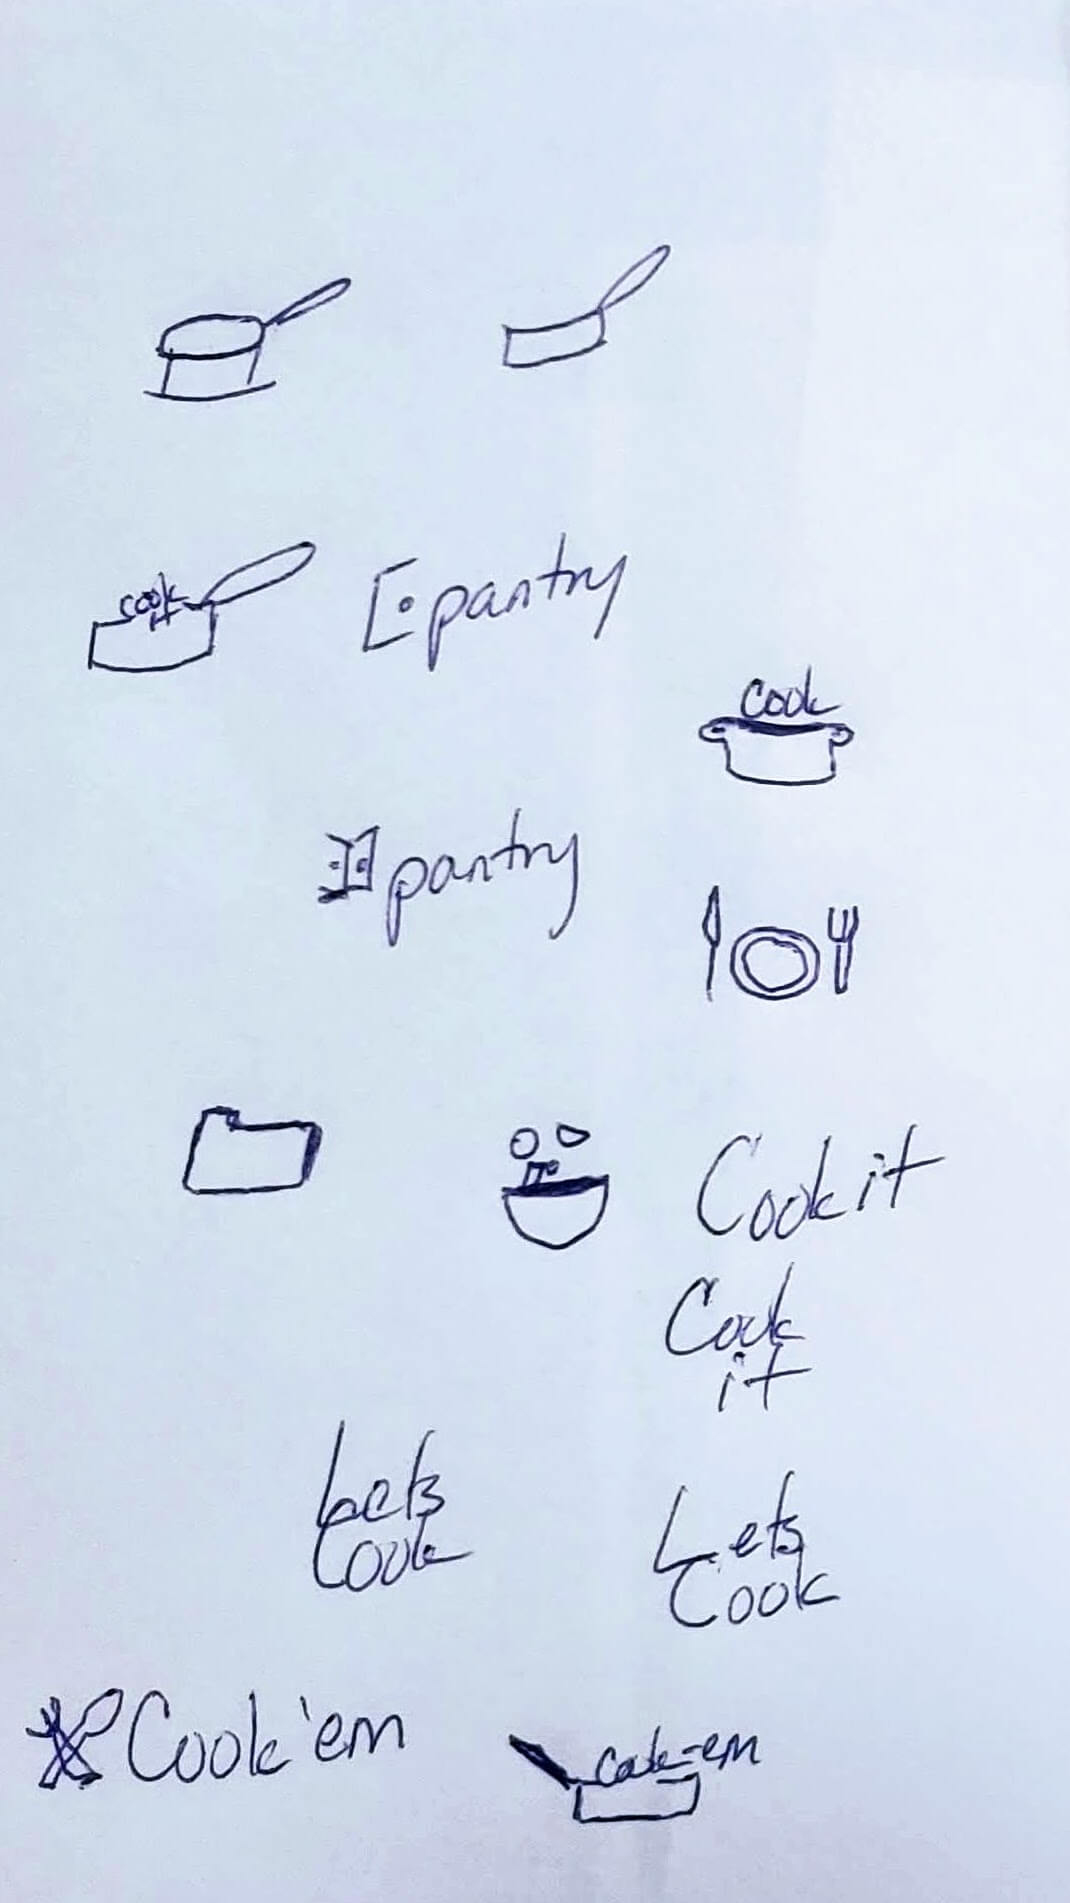 cook
it
pantry
cook
pantry
Cook it
Cook
it
Lets
Cook
Lets
Cook
Cook'em
Cook-em